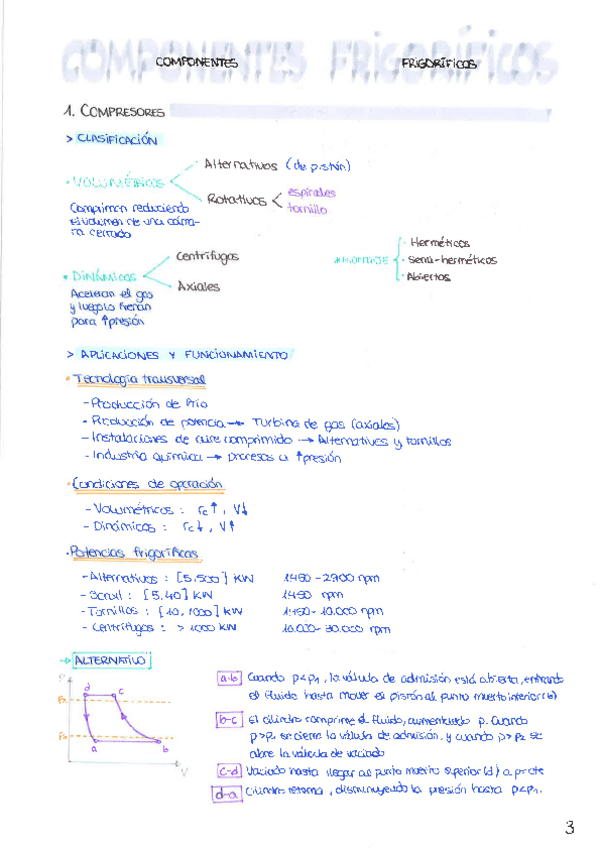 COMPONENTES FRIGORÍFICOS
COMPONENTES FRIGORÍFICOS
1. COMPRESORES
> CLASIFICACIÓN
• VOLUMÉTRICOS
Alternativos (de pistón)
Rotativos < espirales
tornillo
Comprimen reduciendo
el volumen de una cáma-
ra cerrada
• DINÁMICOS
Centrífugos
Axiales
Aceleran el gas
y luego lo frenan
para ↑presión
* MONTAJE
· Herméticos
· Semi-herméticos
· Abiertos
> APLICACIONES Y FUNCIONAMIENTO
• Tecnología transversal
- Producción de frío
- Producción de potencia → Turbina de gas (axiales)
- Instalaciones de aire comprimido → Alternativos y tornillos
- Industria química → procesos a ↑presión
• Condiciones de operación
- Volumétricos : rc↑, V↓
- Dinámicos : rc↓, V↑
• Potencias frigoríficas
- Alternativos : [5,500] KW 1450-2900 rpm
- Scroll : [5,40] KW 1450 rpm
- Tornillos : [10,1000] KW 1450-10.000 rpm
- Centrífugos : > 1000 KW 10.000-30.000 rpm
→ ALTERNATIVO
P
d c
P2
P1
a b
V
a-b Cuando p<p1, la válvula de admisión está abierta, entrando
el fluido hasta mover el pistón al punto muerto inferior (b)
b-c El cilindro comprime el fluido, aumentando p. Cuando
p>p1 se cierra la válvula de admisión, y cuando p>p2 se
abre la válvula de vaciado
c-d Vaciado hasta llegar al punto muerto superior (d) a p=cte
d-a Cilindro retorna, disminuyendo la presión hasta p<p1.
3